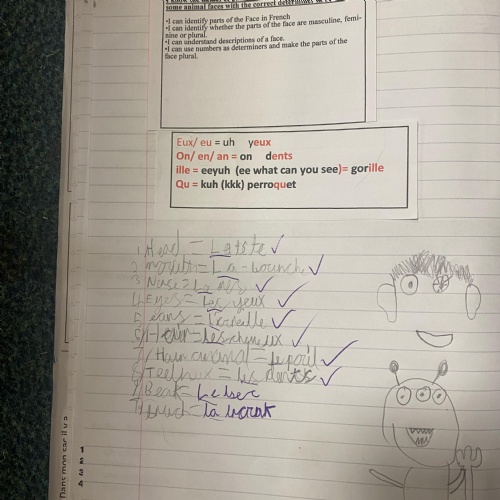 some animal faces with the correct determiner
•I can identify parts of the Face in French
•I can identify whether the parts of the face are masculine, femi-
nine or plural.
•I can understand descriptions of a face.
•I can use numbers as determiners and make the parts of the
face plural.
Eux/ eu = uh yeux
On/ en/ an = on dents
ille = eeyuh (ee what can you see)= gorille
Qu = kuh (kkk) perroquet
1 Head = Latete ✓
2 mouth = La-bounch ✓
3 Nose = ✓
4 Eyes = Les yeux ✓
ears = ✓
Hair = ✓
Hair animal = le poil ✓
8 Teeth = les dents ✓
9 Beak = Le bec
Dans mon sac il y a
1
2
3
4